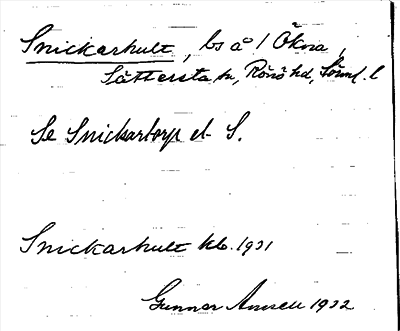 Snickarhult, bs å 1 Ökna,
Sättersta sn, Rönö hd, Söml. l
Se Snickartorp el- S.
Snickarhult kb. 1921
Gunnar Amsell 1922